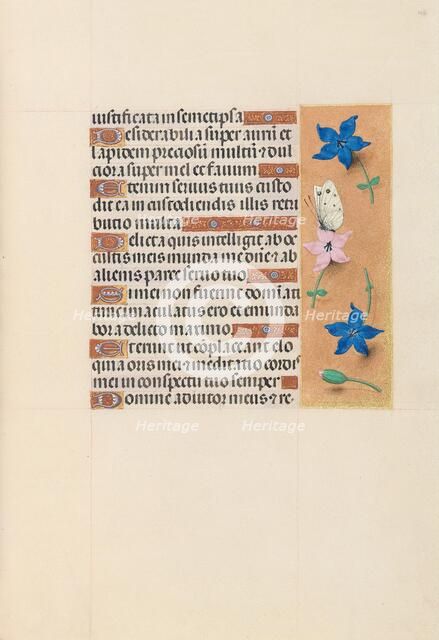 iustificata in semetipsa
Desiderabilia super auru et
lapidem preciosu multu & dul
ciora super mel et fauum
Etenim seruus tuus custo
dit ea in custodiendis illis retri
butio multa
Delicta quis intelligit ab oc
cultis meis munda me dne & ab
alienis parce seruo tuo
Si mei non fuerint dominati
tunc immaculatus ero et emunda
bor a delicto maximo
Et erunt ut coplaceant elo
quia oris mei & meditatio cordis
mei in conspectu tuo semper
Domine adiutor meus & re
Heritage
Heritage
Heritage
Heritage
Heritage
Heritage
Heritage
Heritage